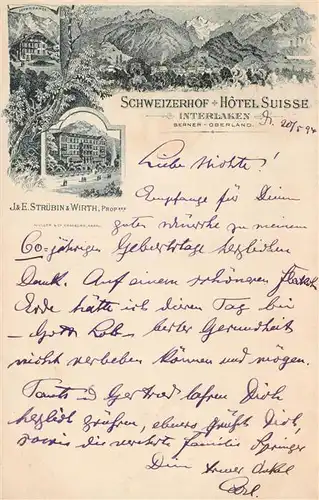 SCHWEIZERHOF + HÔTEL SUISSE
INTERLAKEN
BERNER-OBERLAND.
20/5 94
J. & E. STRÜBIN & WIRTH, PROP
Liebe Nichte!
Empfange für Deine
guten wünsche zu meinem
60-jährigen Geburtstage herzlichen
Dank. Auf einem schöneren
Erde hätte ich diesen Tag bei
Gott Lob bester Gesundheit
nicht verleben können und mögen.
Tante u Gertrud lassen Dich
herzlich grüßen, ebenso grüßt Dich,
sowie die verehrte Familie Springer
Dein treuer Onkel